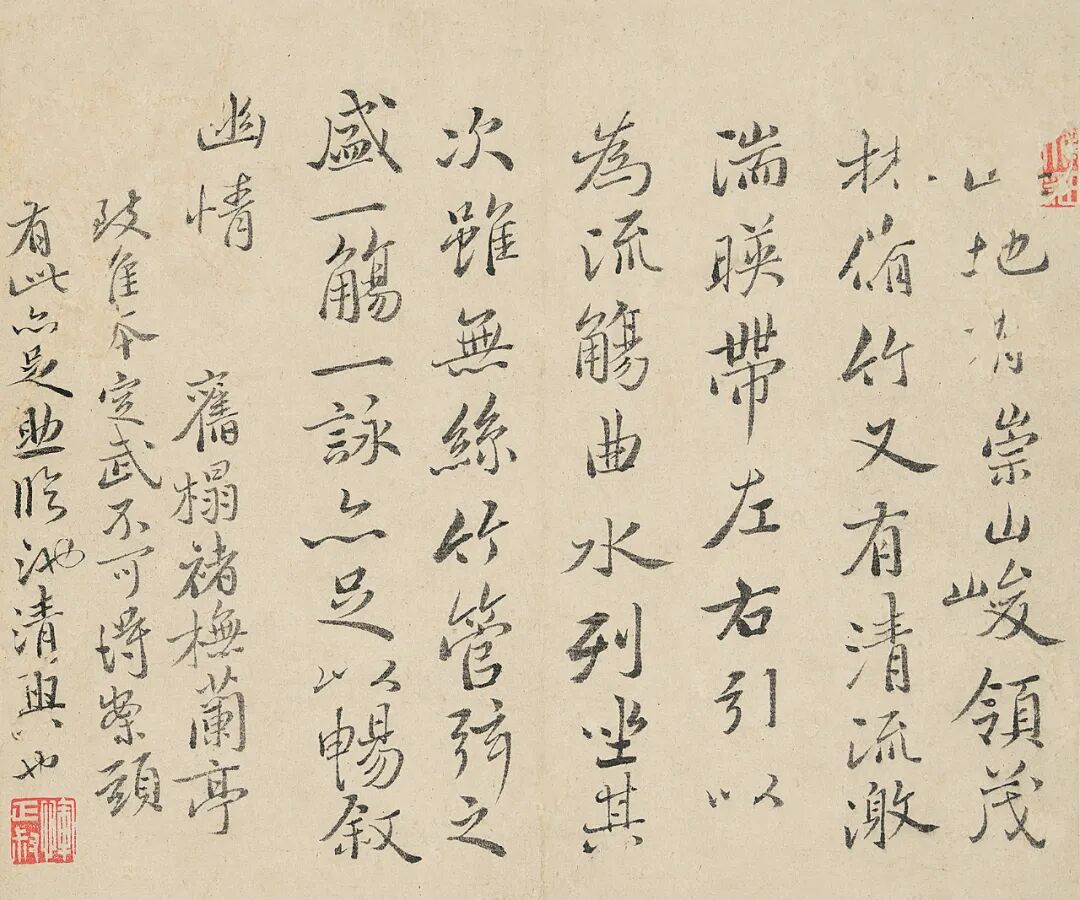 此地有崇山峻領茂
林脩竹又有清流激
湍暎帶左右引以
為流觴曲水列坐其
次雖無絲竹管弦之
盛一觴一詠亦足以暢敘
幽情
舊榻褚橅蘭亭
致佳本定武不可得案頭
有此亦足助臨池清興也
惲正叔